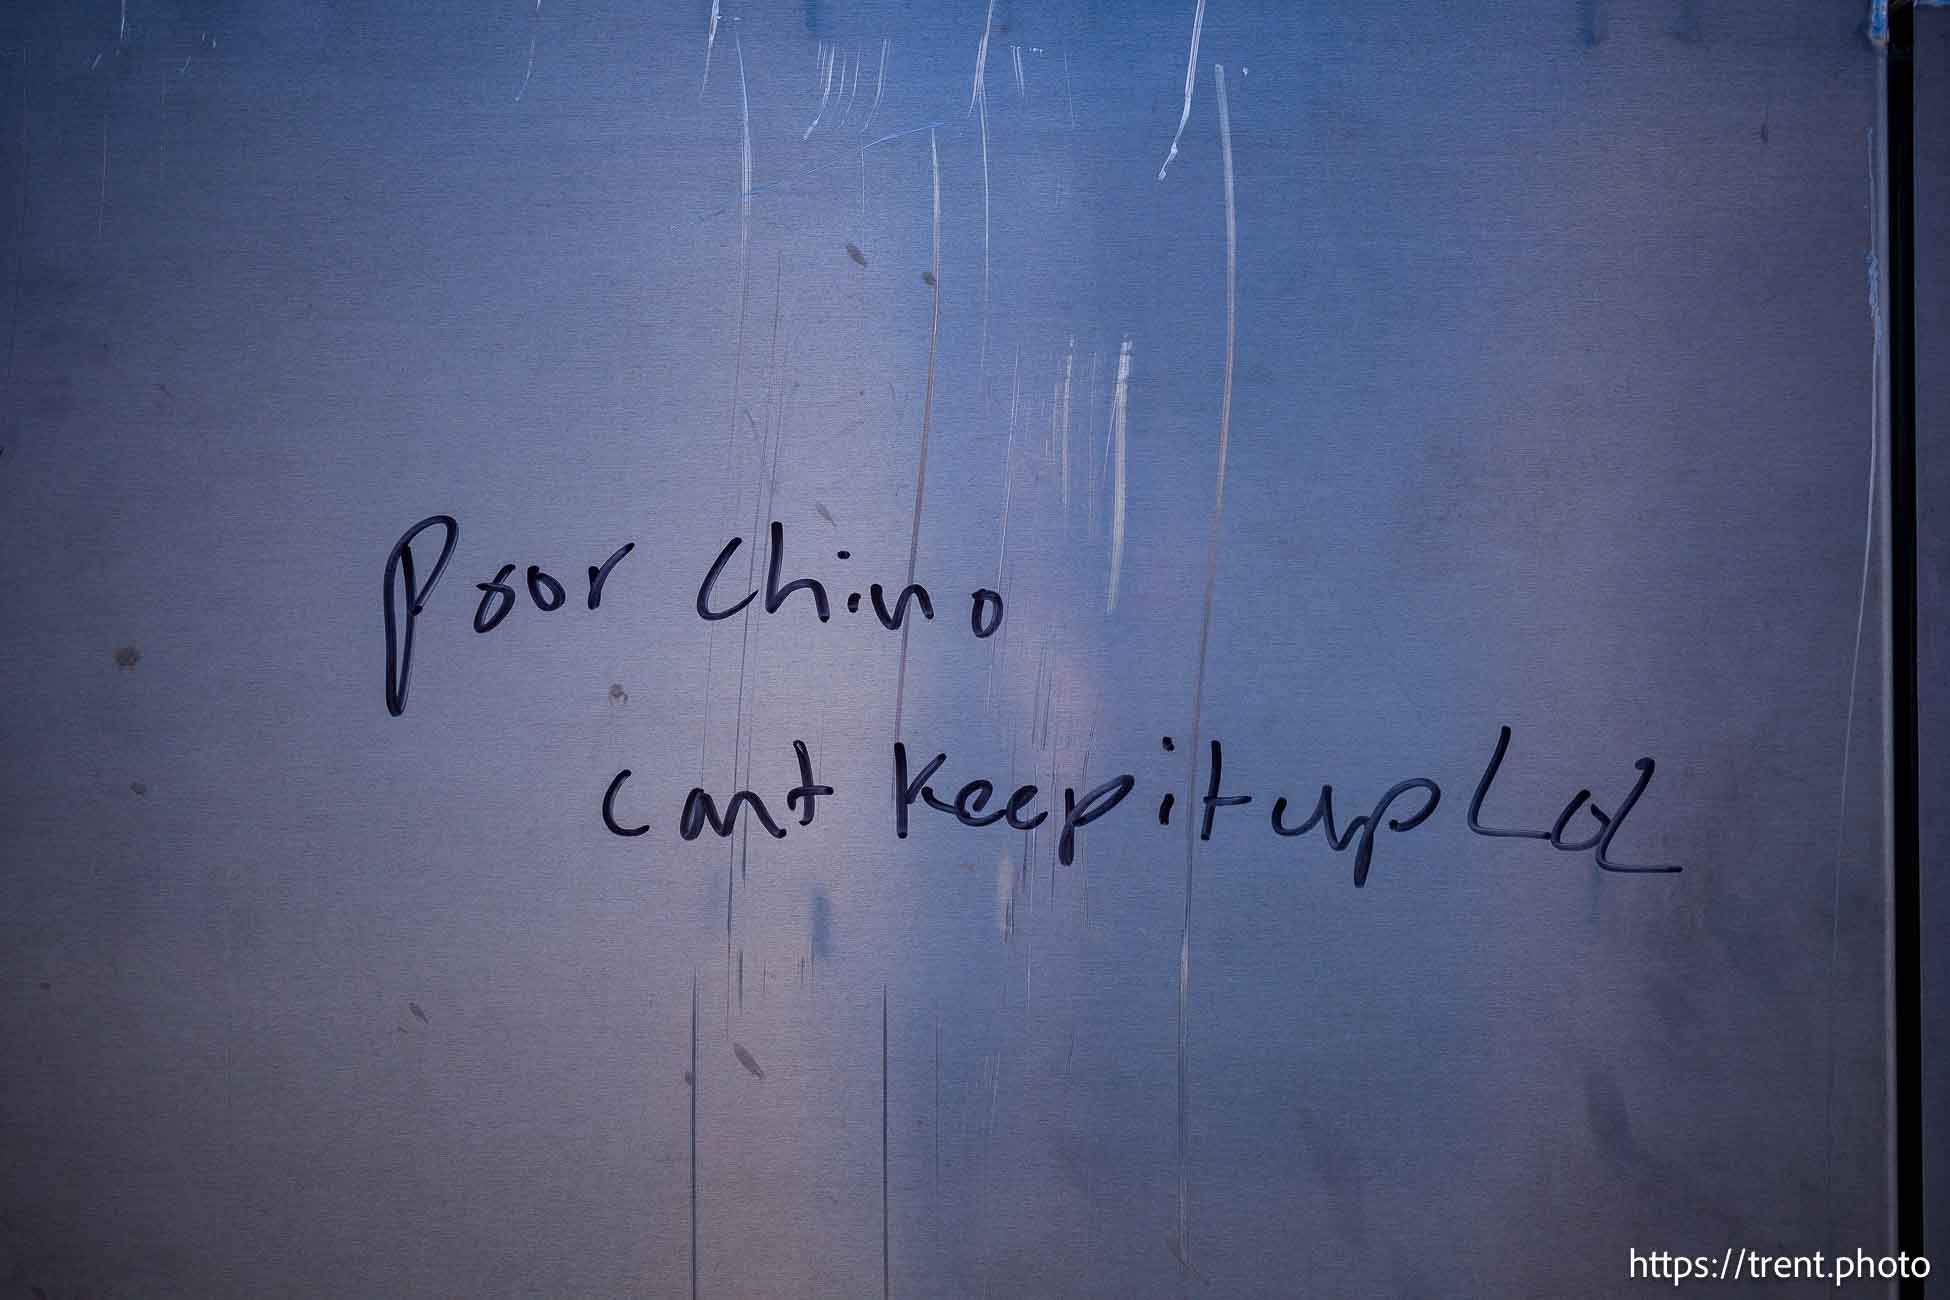 Poor Chino
cant keep it up Lol
https://trent.photo